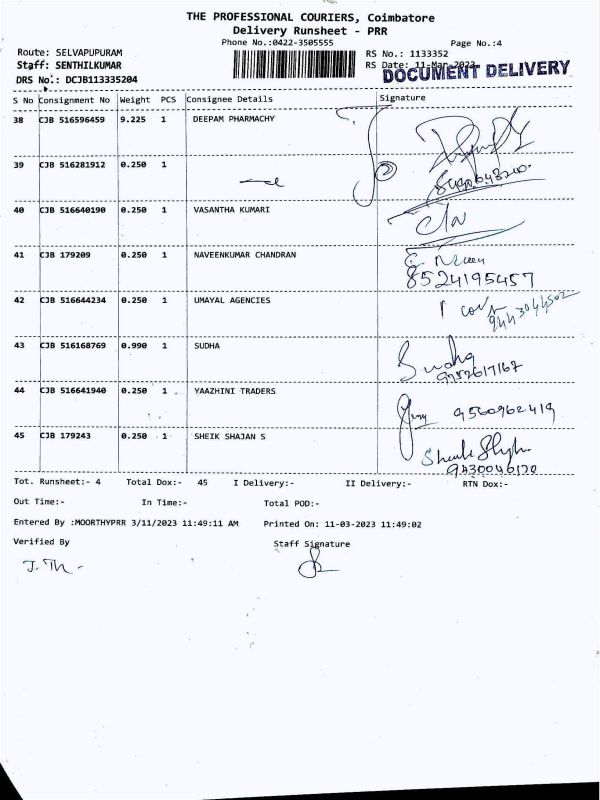 THE PROFESSIONAL COURIERS, Coimbatore
Delivery Runsheet - PRR
Phone No.:0422-3505555 Page No.:4
Route: SELVAPUPURAM RS No.: 1133352
Staff: SENTHILKUMAR RS Date: 11-Mar-2023
DOCUMENT DELIVERY
DRS No.: DCJB113335204
S No Consignment No Weight PCS Consignee Details Signature
38 CJB 516596459 9.225 1 DEEPAM PHARMACHY
39 CJB 516281912 0.250 1
40 CJB 516640190 0.250 1 VASANTHA KUMARI
41 CJB 179209 0.250 1 NAVEENKUMAR CHANDRAN
8524195457
42 CJB 516644234 0.250 1 UMAYAL AGENCIES
9443044502
43 CJB 516168769 0.990 1 SUDHA
Sudha
9952617167
44 CJB 516641940 0.250 1 YAAZHINI TRADERS
9560962419
45 CJB 179243 0.250 1 SHEIK SHAJAN S
9430046120
Tot. Runsheet:- 4 Total Dox:- 45 I Delivery:- II Delivery:- RTN Dox:-
Out Time:- In Time:- Total POD:-
Entered By :MOORTHYPRR 3/11/2023 11:49:11 AM Printed On: 11-03-2023 11:49:02
Verified By Staff Signature